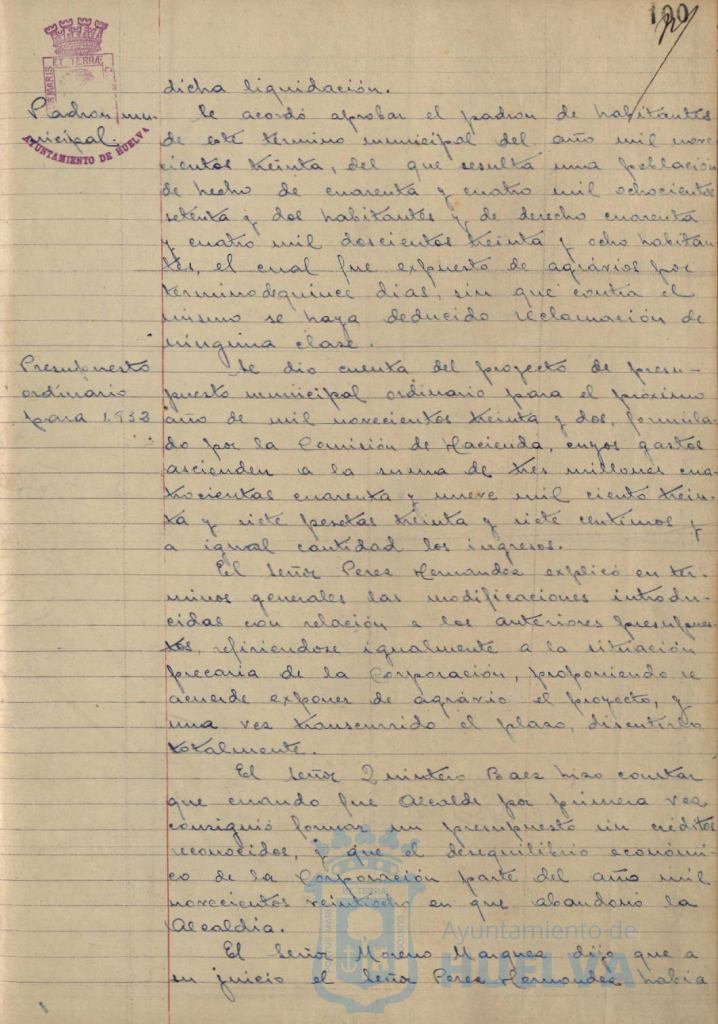 100
dicha liquidación.
Padron mu-
nicipal.
AYUNTAMIENTO DE HUELVA
Se acordó aprobar el padron de habitantes
de este termino municipal del año mil nove
cientos treinta, del que resulta una población
de hecho de cuarenta y cuatro mil ochocientos
setenta y dos habitantes y de derecho cuarenta
y cuatro mil doscientos treinta y ocho habitan-
tes, el cual fue expuesto de agrávios por
termino de quince dias, sin que contra el
mismo se haya deducido reclamación de
ninguna clase.
Presupuesto
ordinario
para 1.932
Se dio cuenta del proyecto de presu-
puesto municipal ordinario para el próximo
año de mil novecientos treinta y dos, formula-
do por la Comisión de Hacienda, cuyos gastos
ascienden a la suma de tres millones cua-
trocientas cuarenta y nueve mil ciento trein-
ta y siete pesetas treinta y siete centimos y
a igual cantidad los ingresos.
El Señor Perez Hernandez explicó en ter-
minos generales las modificaciones introdu-
cidas con relación a los anteriores presupues-
tos, refiriendose igualmente a la situación
precaria de la Corporación, proponiendo se
acuerde exponer de agrávio el proyecto, y
una vez transcurrido el plazo, discutirlo
totalmente.
El Señor Quintero Baez hizo constar
que cuando fue Alcalde por primera vez
consiguió formar un presupuesto sin créditos
reconocidos, y que el desequilibrio económi-
co de la Corporación parte del año mil
novecientos veintiocho en que abandonó la
Alcaldia.
El Señor Moreno Marquez dijo que a
su juicio el Señor Perez Hernandez había
Ayuntamiento de
HUELVA